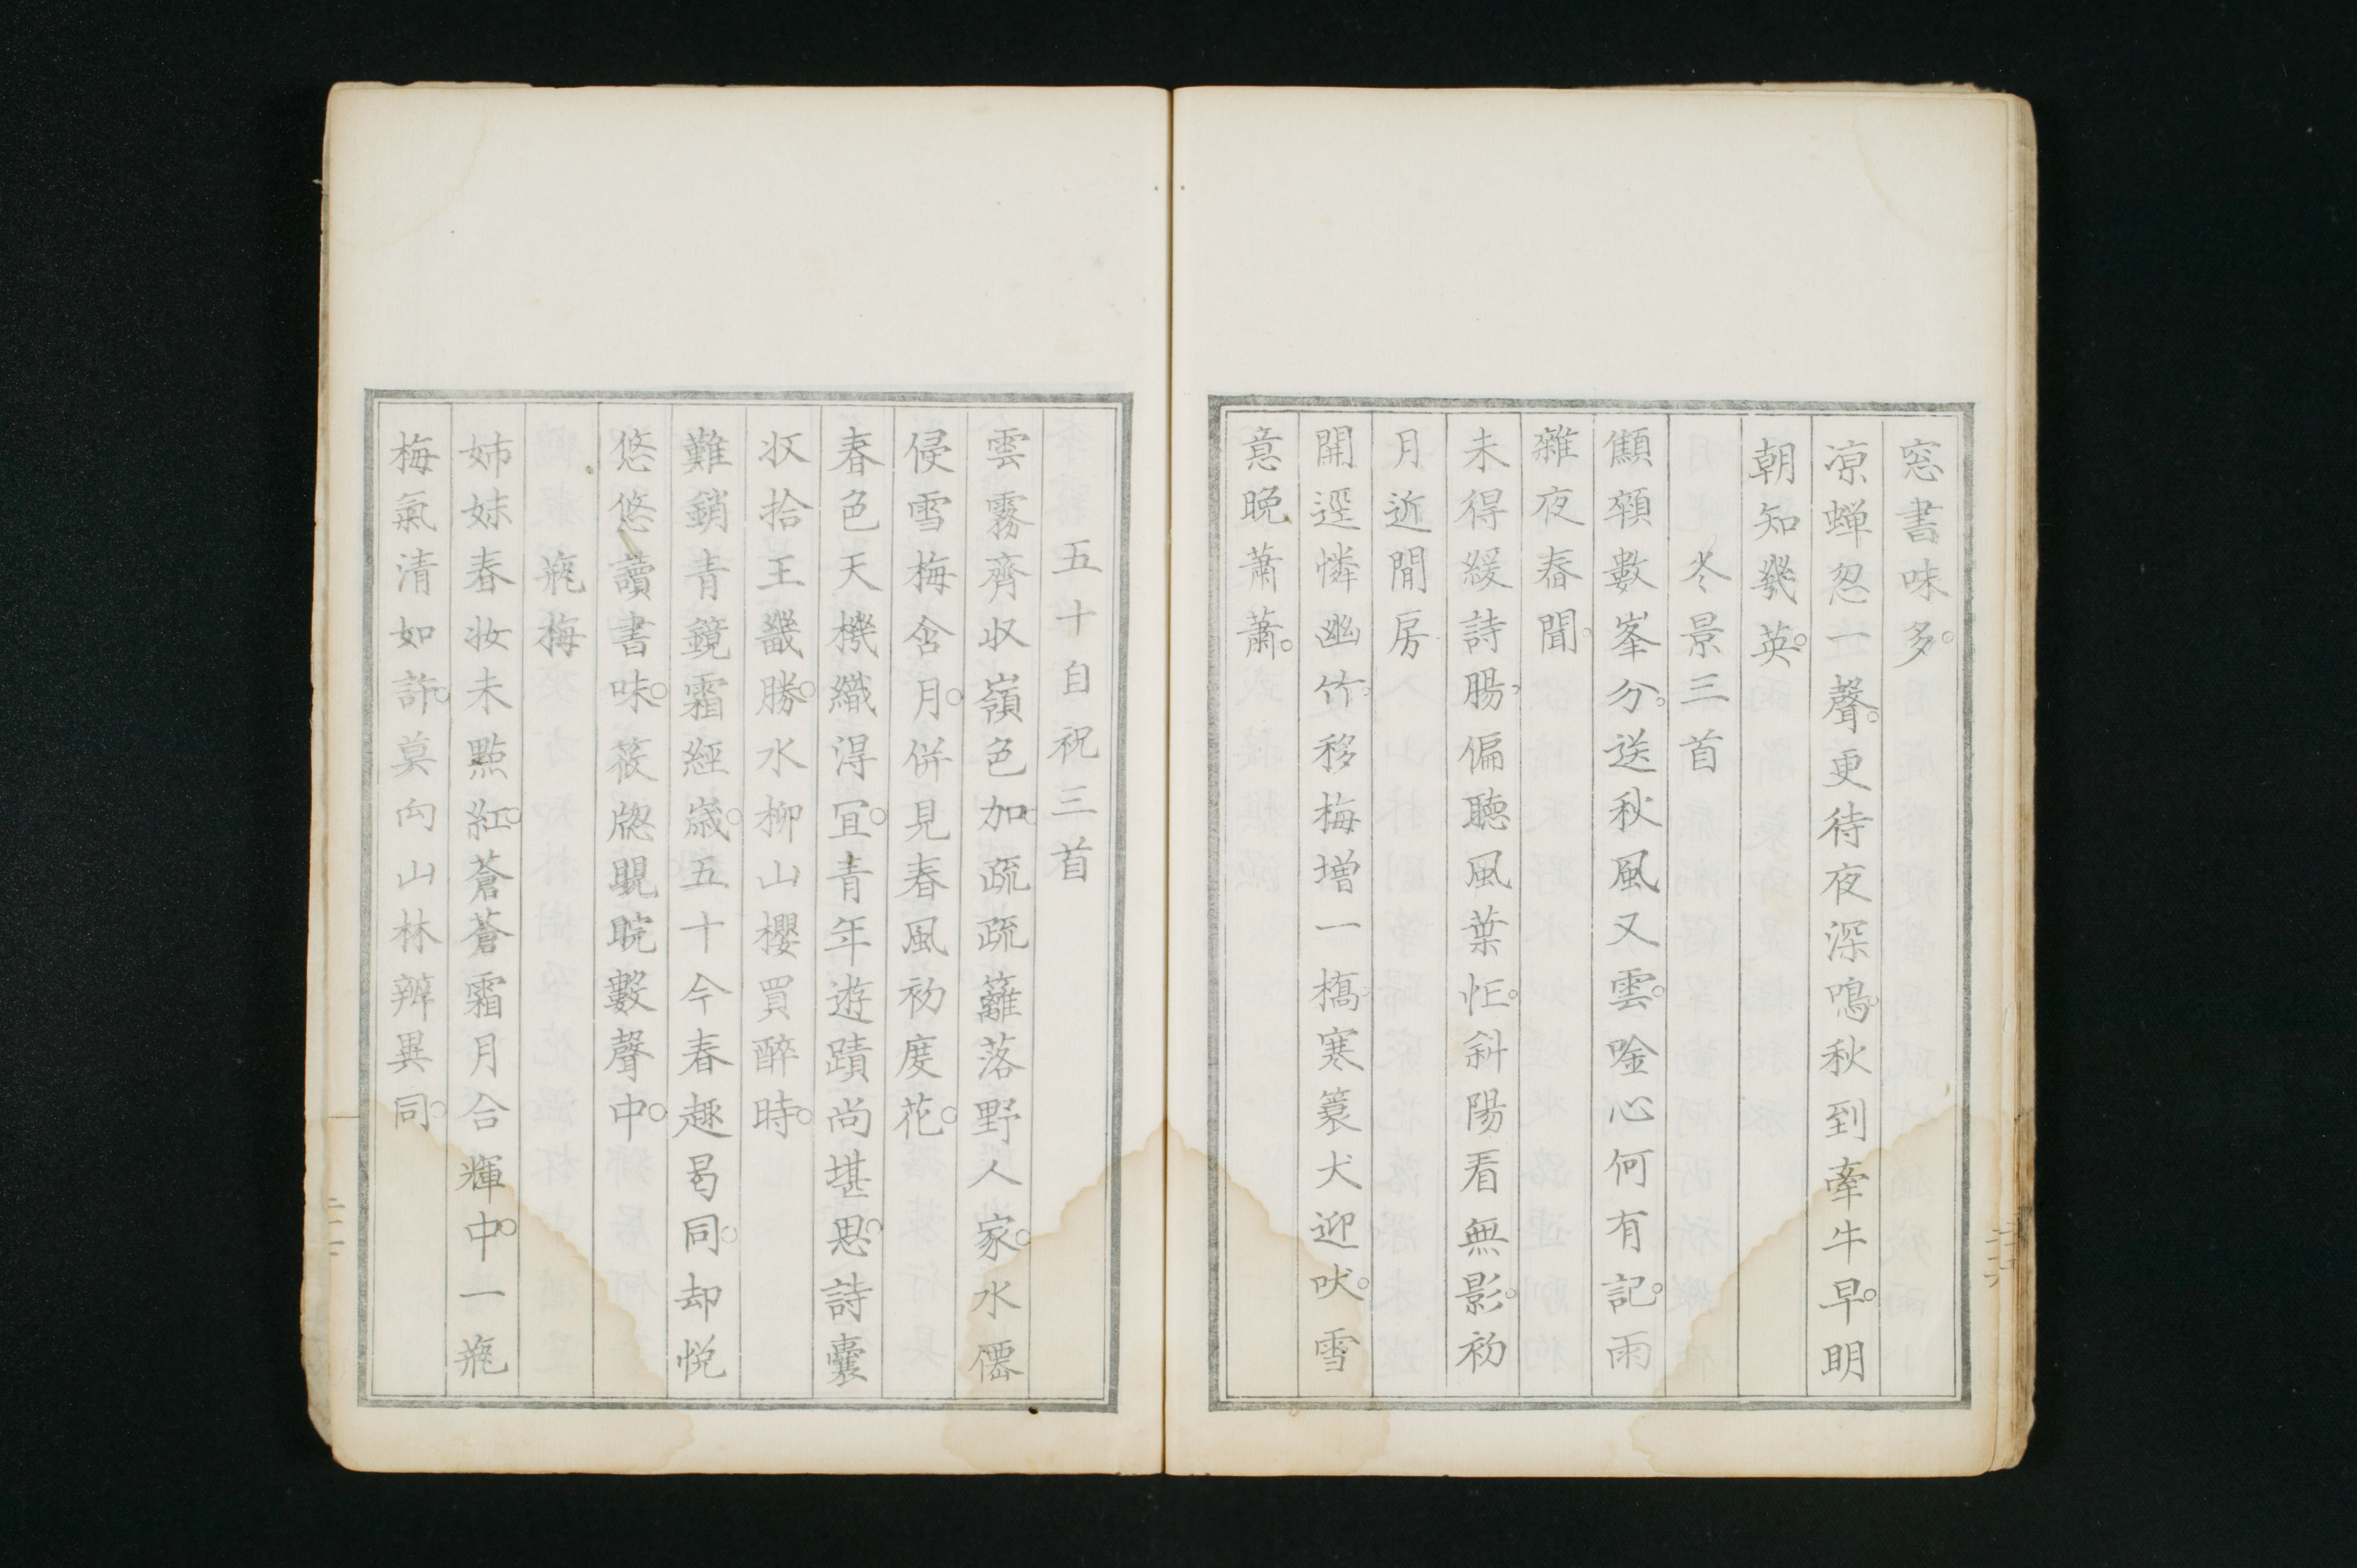 窓書味多。
凉蝉忽一聲。更待夜深鳴。秋到牽牛早。明
朝知幾英。
冬景三首
顦顇數峯分。送秋風又雲。唫心何有記。雨
雜夜舂聞。
未得緩詩腸。偏聽風葉忙。斜陽看無影。初
月近閒房
開逕憐幽竹。移梅増一橋。寒蓑犬迎吠。雪
意晩蕭蕭。
五十自祝三首
雲霧齊収嶺色加。疏疏籬落野人家。水僊
侵雪梅含月。併見春風初度花。
春色天機織得冝。青年遊蹟尚堪思。詩囊
収拾王畿勝。水柳山櫻買醉時。
難銷青鏡霜經歳。五十今春趣曷同。却悦
悠悠讀書味。筱牎睍睆數聲中。
甁梅
姉妹春妝未點紅。蒼蒼霜月合輝中。一甁
梅氣清如許。莫向山林辨異同。